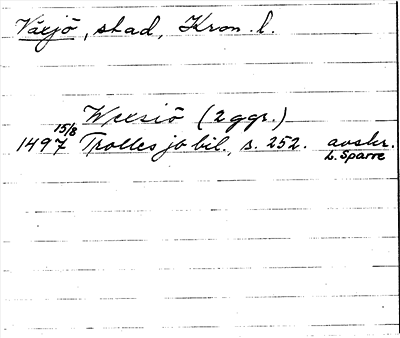 Växjö, stad, Kron. l.
Wexsiö (2 ggr.)
1497 15/8 Trolles jo bil., s. 252. avskr.
L. Sparre